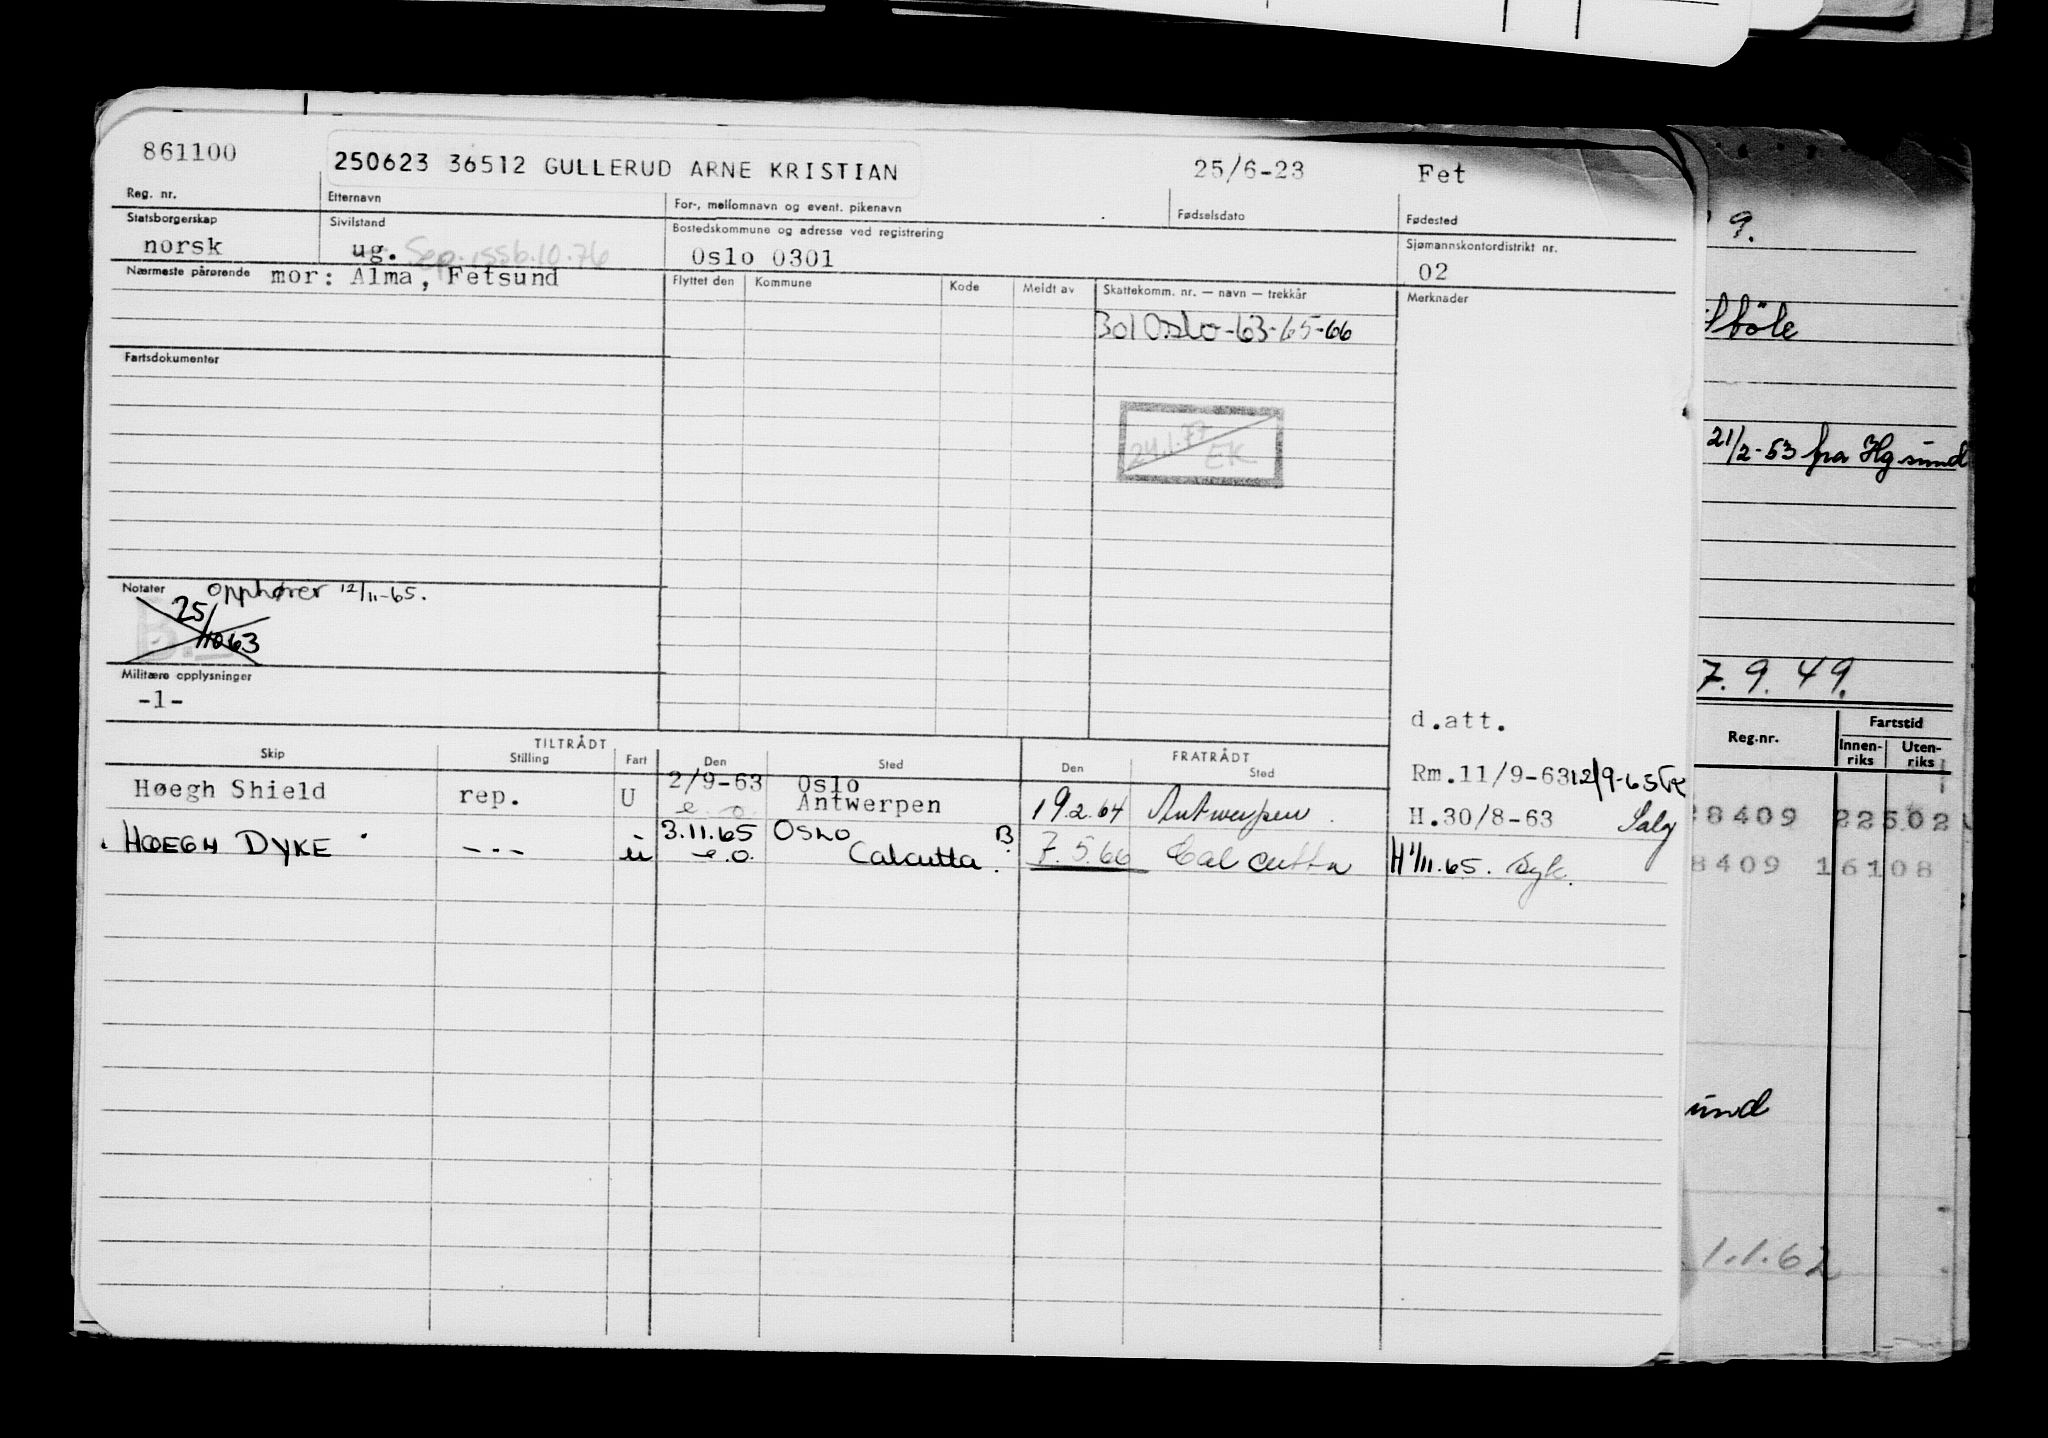 861100
250623 36512 GULLERUD ARNE KRISTIAN
25/6-23
Fet
Reg. nr.
Etternavn
For-, mellomnavn og event. pikenavn
Fødselsdato
Fødested
Statsborgerskap
Sivilstand
Bostedskommune og adresse ved registrering
Sjømannskontordistrikt nr.
norsk
ug. Sep. ssb.10.76
Oslo 0301
02
Nærmeste pårørende mor: Alma, Fetsund
Flyttet den
Kommune
Kode
Meldt av
Skattekomm. nr. — navn — trekkår
Merknader
301 Oslo-63-65-66
Fartsdokumenter
24.1.77
EK
Notater opphører 12/11-65.
25/
1063
Militære opplysninger
-1-
d.att.
TILTRÅDT
FRATRÅDT
Skip
Stilling
Fart
Den
Sted
Den
Sted
Rm.11/9-63 12/9-65
Høegh Shield
rep.
U
2/9-63
Oslo
e.o.
Antwerpen
19.2.64
Antwerpen.
H.30/8-63
HØEGH DYKE
---
u
3.11.65
Oslo
B
e.o.
Calcutta.
7.5.66
Calcutta
H 1/11.65.
9.
21/2-53 fra Hg sund
7.9.49.
Reg.nr.
Fartstid
Innen-
riks
Uten-
riks
8409 22502
8409 16108
sund
1.1.62